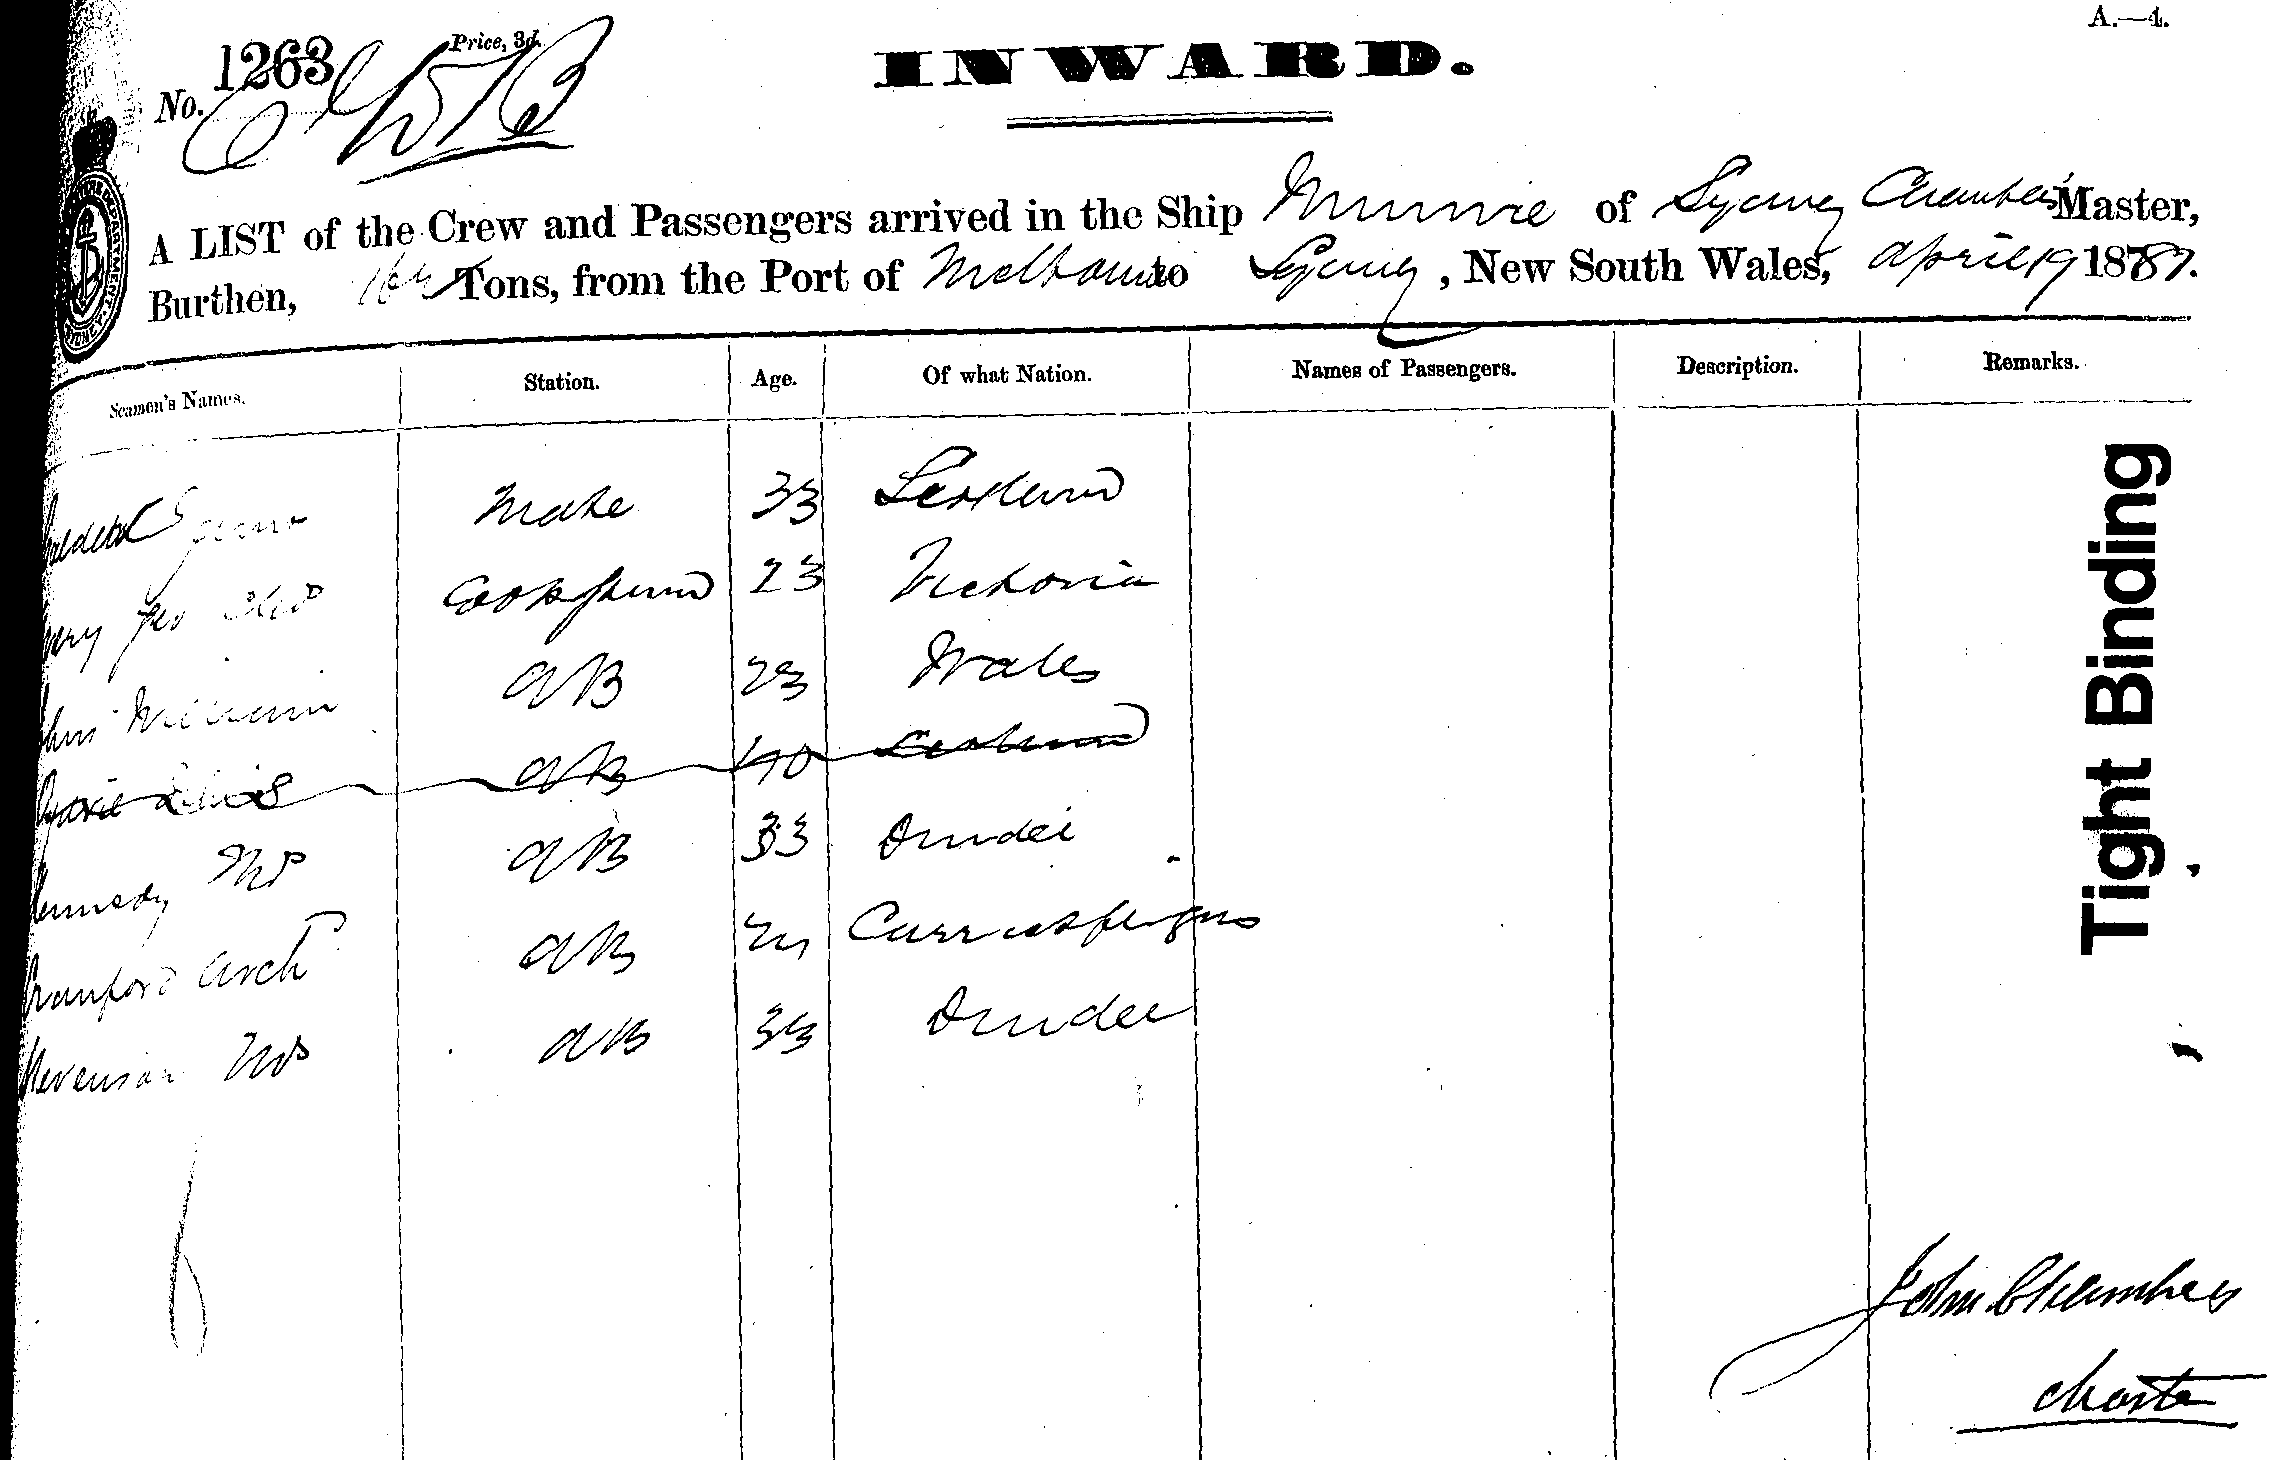 A.—4.
Price, 3d.
No. 1263
INWARD.
A LIST of the Crew and Passengers arrived in the Ship Minnie of Sydney Chambers Master,
Burthen, Tons, from the Port of Melbourne to Sydney, New South Wales, April 19 1887.
Seamen's Names. Station. Age. Of what Nation. Names of Passengers. Description. Remarks.
Mate 33 Scotland
Geo Cook & Seaman 23 Victoria
William AB 23 Wales
AB 40 Scotland
Kennedy Thos AB 33 Dundee
Cranford Arch AB Carricksfergus
Stevenson Thos AB 33 Dundee
John Chambers
Master
Tight Binding